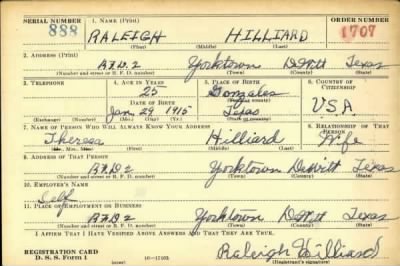 SERIAL NUMBER 1. NAME (Print) ORDER NUMBER
888 RALEIGH HILLIARD 1707
(First) (Middle) (Last)
2. ADDRESS (Print)
R.F.D. 2 Yorktown DeWitt Texas
(Number and street or R. F. D. number) (Town) (County) (State)
3. TELEPHONE 4. AGE IN YEARS 5. PLACE OF BIRTH 6. COUNTRY OF CITIZENSHIP
25 Gonzales
DATE OF BIRTH (Town or county)
Jan. 29 1915 Texas U.S.A.
(Exchange) (Number) (Mo.) (Day) (Yr.) (State or country)
7. NAME OF PERSON WHO WILL ALWAYS KNOW YOUR ADDRESS 8. RELATIONSHIP OF THAT PERSON
Theresa Hilliard Wife
(Mr., Mrs., Miss) (First) (Middle) (Last)
9. ADDRESS OF THAT PERSON
RFD 2 Yorktown DeWitt Texas
(Number and street or R. F. D. number) (Town) (County) (State)
10. EMPLOYER'S NAME
Self
11. PLACE OF EMPLOYMENT OR BUSINESS
RFD 2 Yorktown DeWitt Texas
(Number and street or R. F. D. number) (Town) (County) (State)
I AFFIRM THAT I HAVE VERIFIED ABOVE ANSWERS AND THAT THEY ARE TRUE.
REGISTRATION CARD
D. S. S. Form 1 16—17105
Raleigh Hilliard
(Registrant's signature)